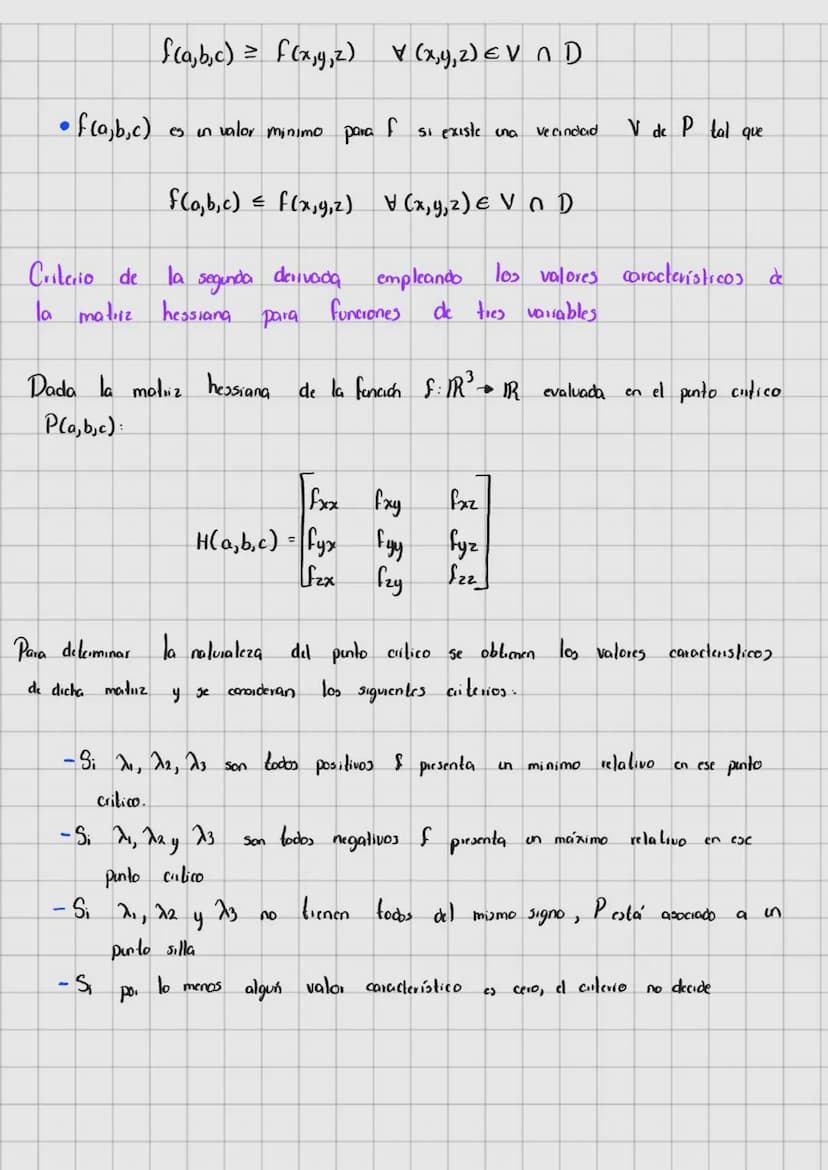 f(a,b,c) ≥ f(x,y,z) ∀ (x,y,z) ∈ V ∩ D
• f(a,b,c) es un valor minimo para f si existe una vecindad V de P tal que
f(a,b,c) ≤ f(x,y,z) ∀ (x,y,z) ∈ V ∩ D
Criterio de la segunda derivada empleando los valores característicos de
la matriz hessiana para funciones de tres variables
Dada la matriz hessiana de la función f: ℝ³ → ℝ evaluada en el punto critico
P(a,b,c):
fxx fxy fxz
H(a,b,c) = fyx fyy fyz
fzx fzy fzz
Para determinar la naturaleza del punto crítico se obtienen los valores caracteristicos
de dicha matriz y se consideran los siguientes criterios:
- Si λ1, λ2, λ3 son todos positivos f presenta un minimo relativo en ese punto
critico.
- Si λ1, λ2 y λ3 son todos negativos f presenta un máximo relativo en ese
punto critico
- Si λ1, λ2 y λ3 no tienen todos del mismo signo, P está asociado a un
punto silla
- Si por lo menos algún valor característico es cero, el criterio no decide